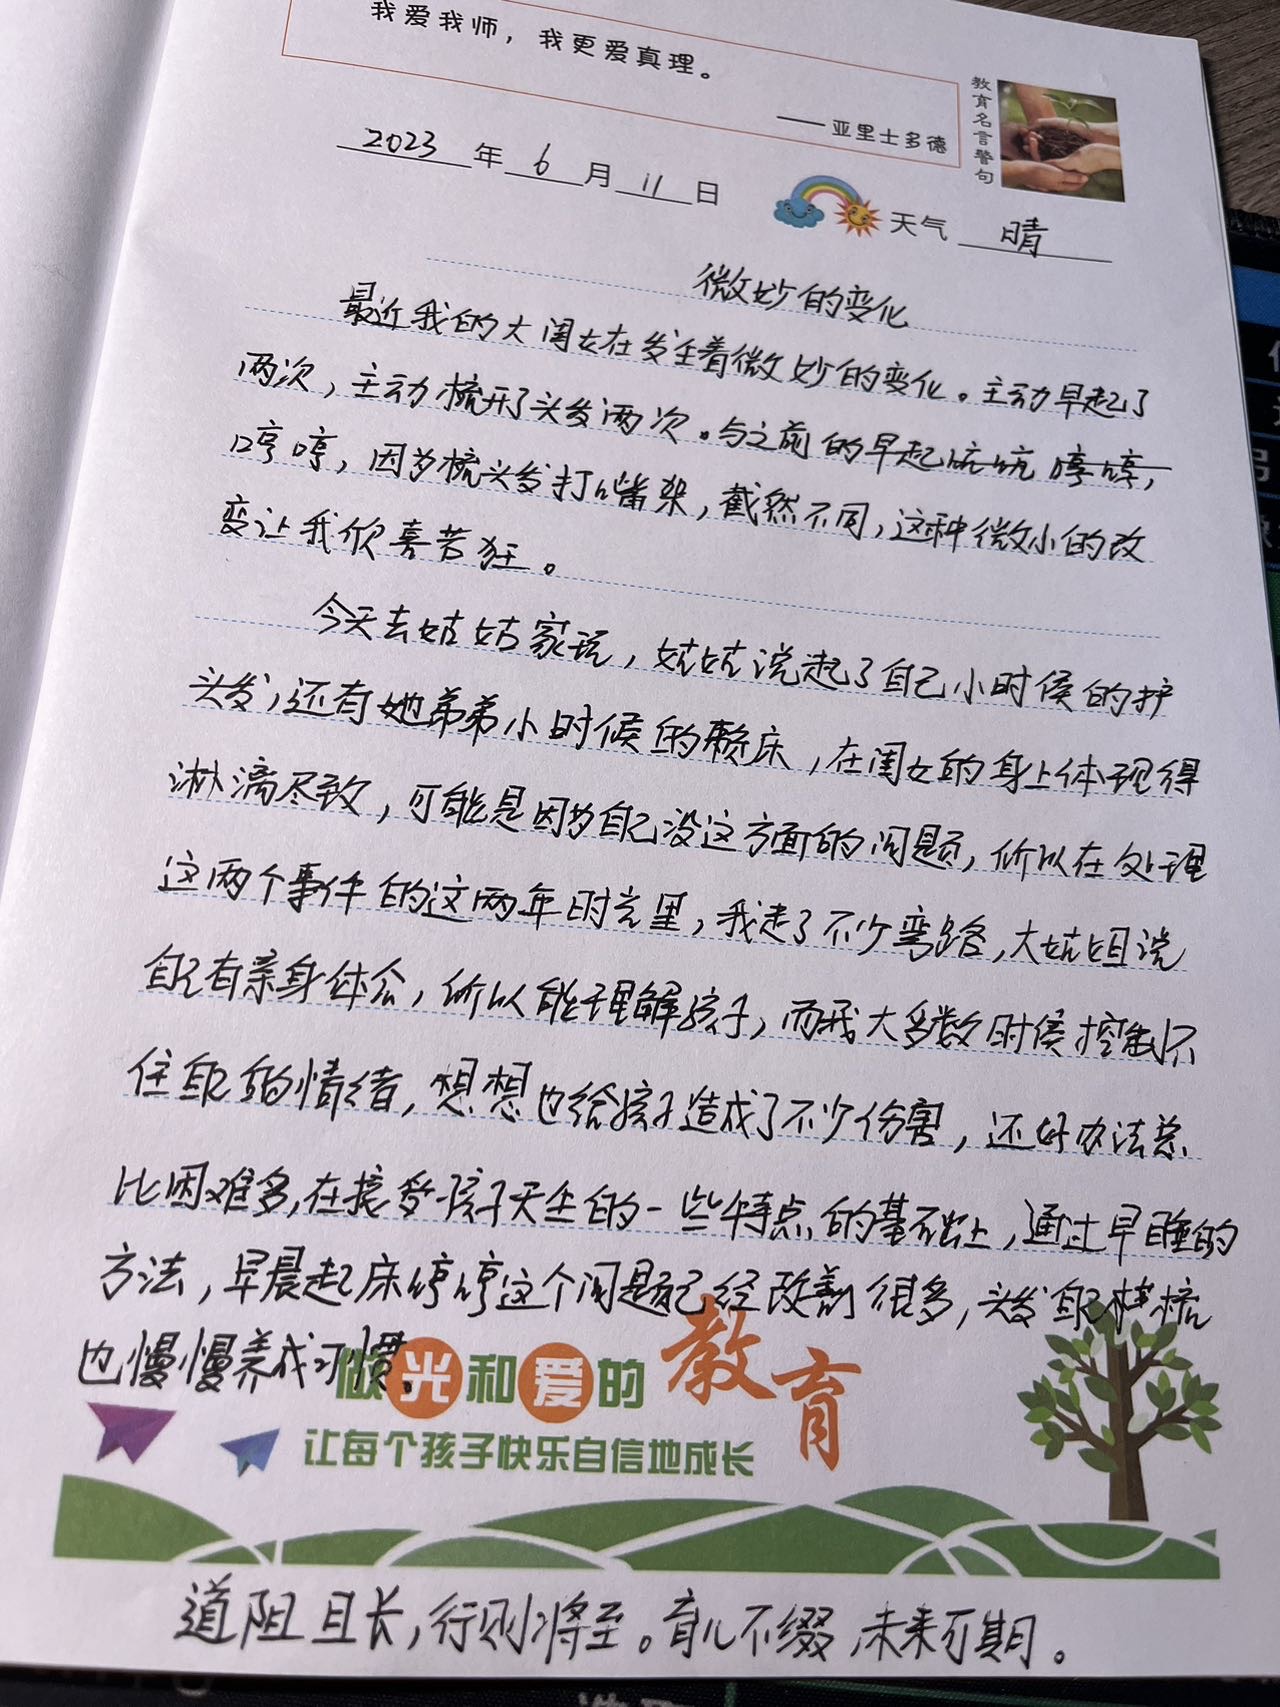 我爱我师，我更爱真理。
——亚里士多德
教育名言警句
2023年6月11日
天气 晴
微妙的变化
最近我的大闺女在发生着微妙的变化。主动早起了
两次，主动梳开了头发两次。与之前的早起吭吭哼哼，
哼哼，因为梳头发打嘴架，截然不同，这种微小的改
变让我欣喜若狂。
今天去姑姑家玩，姑姑说起了自己小时侯的护
头发，还有她弟弟小时候的赖床，在闺女的身上体现得
淋漓尽致，可能是因为自己没这方面的问题，所以在处理
这两个事件的这两年时光里，我走了不少弯路，大姑姐说
自己有亲身体会，所以能理解孩子，而我大多数时侯控制不
住自己的情绪，想想也给孩子造成了不少伤害，还好办法总
比困难多，在接受孩子天生的一些特点的基础上，通过早睡的
方法，早晨起床哼哼这个问题已经改善很多，头发自己梳梳
也慢慢养成习惯。
做光和爱的教育
让每个孩子快乐自信地成长
道阻且长，行则将至。育儿不缀，未来可期。